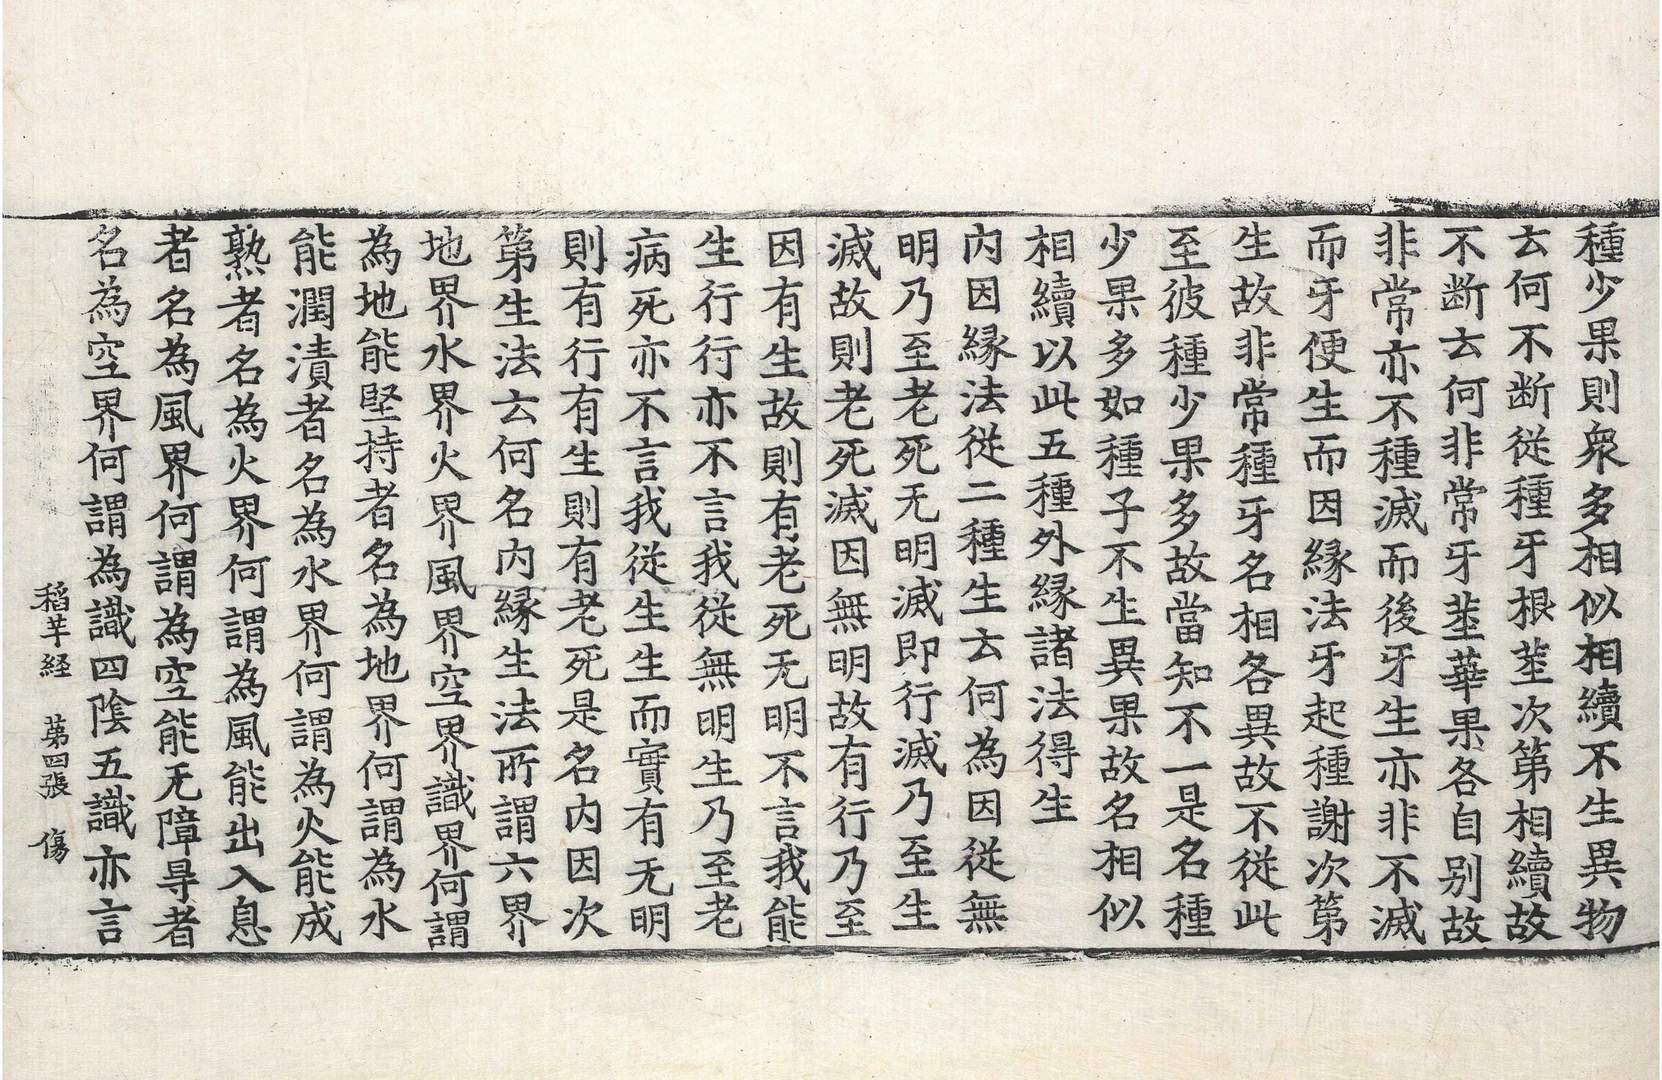 種少果則衆多相似相續不生異物
云何不断從種牙根莖次第相續故
不断云何非常牙莖華果各自别故
非常亦不種滅而後牙生亦非不滅
而牙便生而因緣法牙起種謝次第
生故非常種牙名相各異故不從此
至彼種少果多故當知不一是名種
少果多如種子不生異果故名相似
相續以此五種外緣諸法得生
内因緣法從二種生云何為因從無
明乃至老死无明滅即行滅乃至生
滅故則老死滅因無明故有行乃至
因有生故則有老死无明不言我能
生行行亦不言我從無明生乃至老
病死亦不言我從生生而實有无明
則有行有生則有老死是名内因次
第生法云何名内緣生法所謂六界
地界水界火界風界空界識界何謂
為地能堅持者名為地界何謂為水
能潤漬者名為水界何謂為火能成
熟者名為火界何謂為風能出入息
者名為風界何謂為空能无障㝵者
名為空界何謂為識四陰五識亦言
稻芉経 第四張 傷